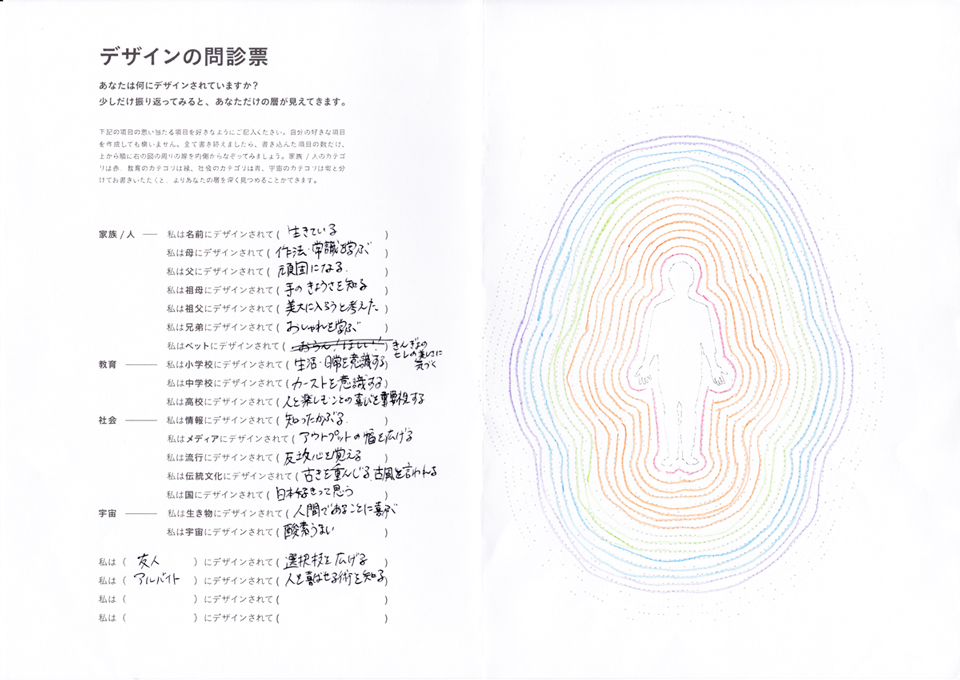 デザインの問診票
あなたは何にデザインされていますか？
少しだけ振り返ってみると、あなただけの層が見えてきます。
下記の項目の思い当たる項目を好きなようにご記入ください。自分の好きな項目
を作成しても構いません。全て書き終えましたら、書き込んだ項目の数だけ、
上から順に右の図の周りの線を内側からなぞってみましょう。家族 / 人のカテゴ
リは赤、教育のカテゴリは緑、社会のカテゴリは青、宇宙のカテゴリは紫と分
けてお書きいただくと、よりあなたの層を深く見つめることができます。
家族 / 人 — 私は名前にデザインされて ( 生きている )
私は母にデザインされて ( 作法・常識を学ぶ )
私は父にデザインされて ( 頑固になる )
私は祖母にデザインされて ( 手のきようさを知る )
私は祖父にデザインされて ( 美大に入ろうと考えた )
私は兄弟にデザインされて ( おしゃれを学ぶ )
私はペットにデザインされて ( ) きんぎょの
ヒレの美しさに
気づく
教育 — 私は小学校にデザインされて ( 生活・日常を意識する )
私は中学校にデザインされて ( カーストを意識する )
私は高校にデザインされて ( 人と楽しむことの喜びを重要視する
社会 — 私は情報にデザインされて ( 知ったかぶる )
私はメディアにデザインされて ( アウトプットの幅を広げる
私は流行にデザインされて ( 反抗心を覚える )
私は伝統文化にデザインされて ( 古きを重んじる、古風と言われる
私は国にデザインされて ( 日本好きって思う )
宇宙 — 私は生き物にデザインされて ( 人間であることに喜ぶ
私は宇宙にデザインされて ( 酸素うまい )
私は ( 友人 ) にデザインされて ( 選択枝を広げる )
私は ( アルバイト ) にデザインされて ( 人を喜ばせる術を知る )
私は ( ) にデザインされて ( )
私は ( ) にデザインされて ( )